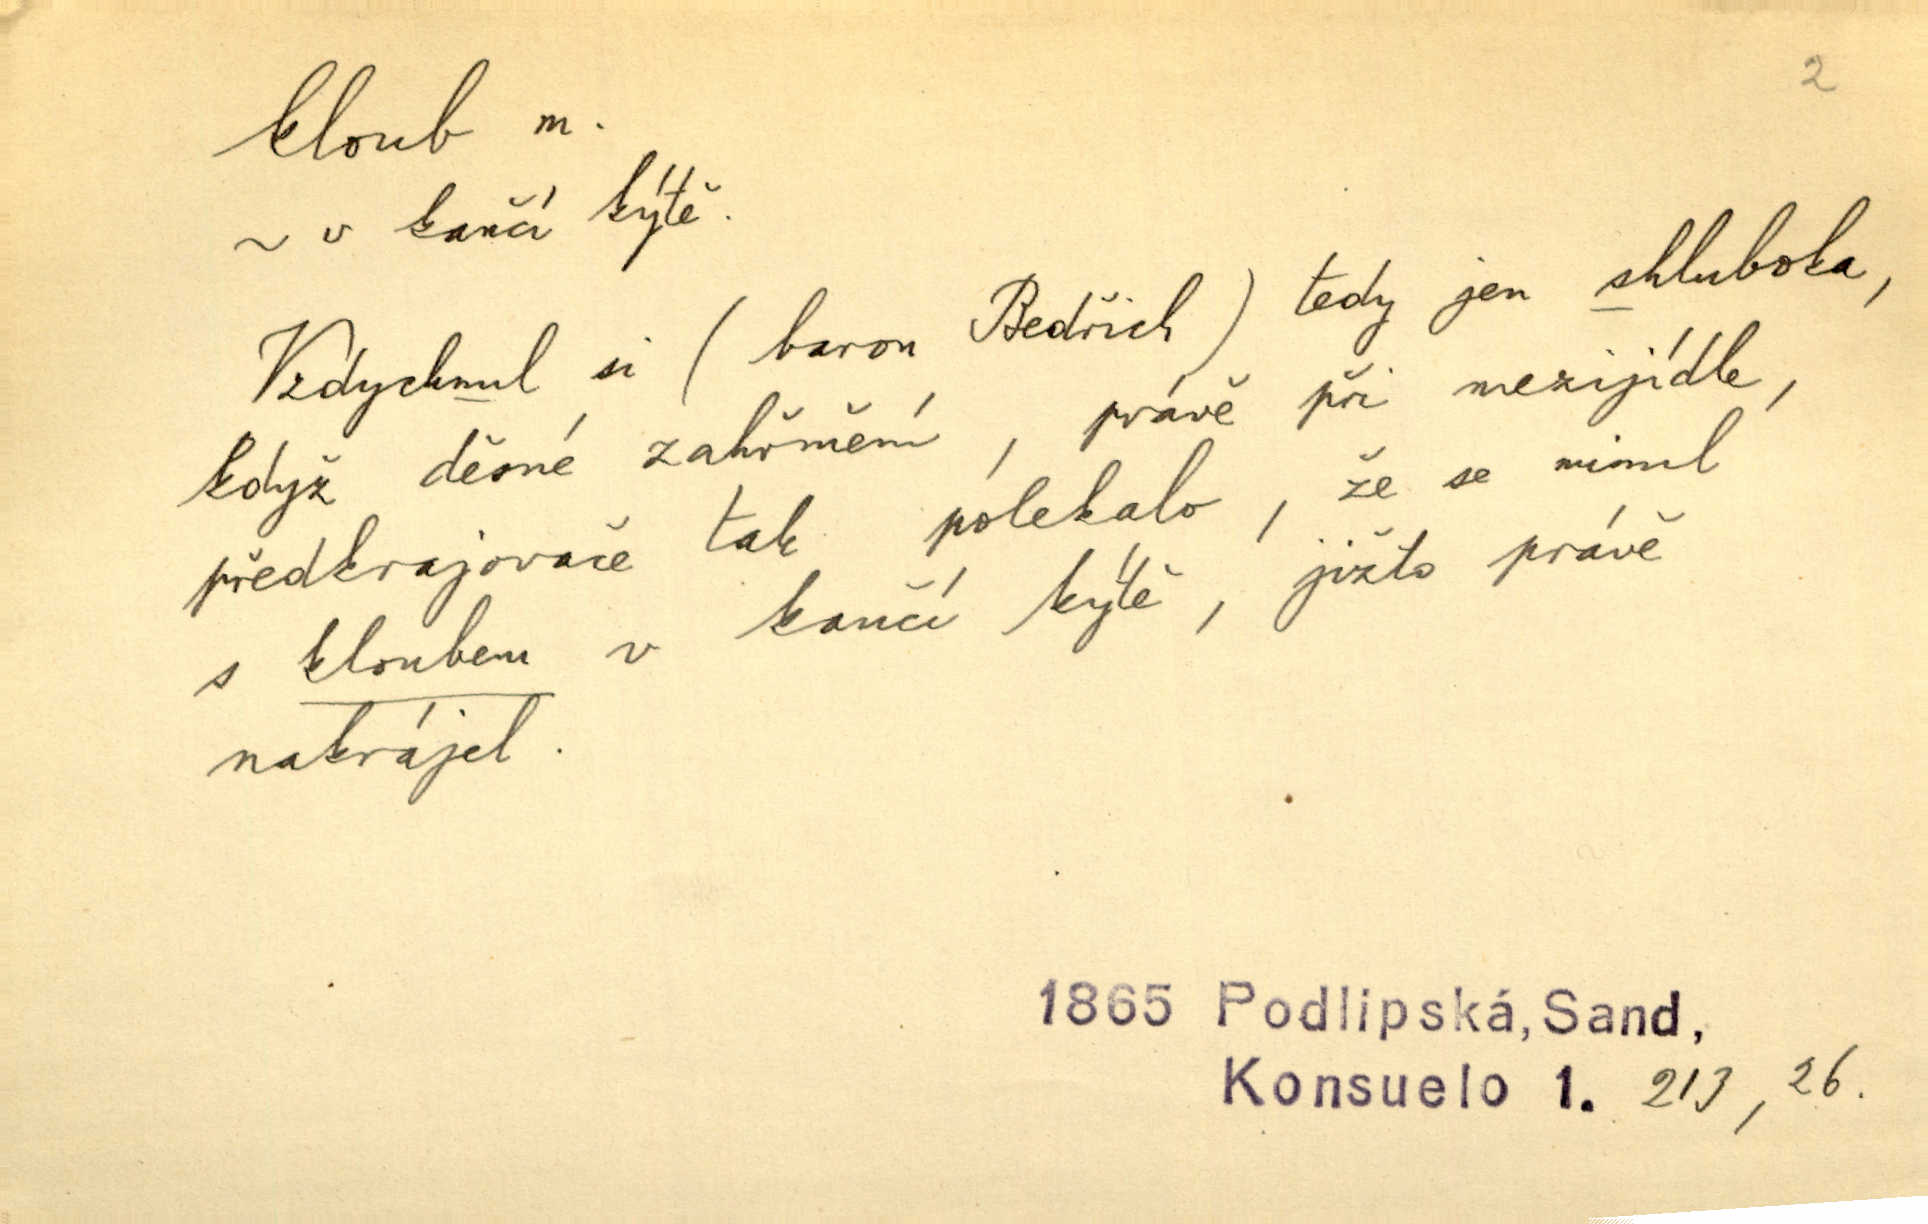 2
kloub m.
~ v kančí kýtě.
Vzdychnul si (baron Bedřich) tedy jen shluboka,
když děsné zahřmění, právě při mezijídle,
předkrajovače tak polekalo, že se minul
s kloubem v kančí kýtě, jižto právě
nakrájel.
1865 Podlipská, Sand,
Konsuelo 1. 213, 26.